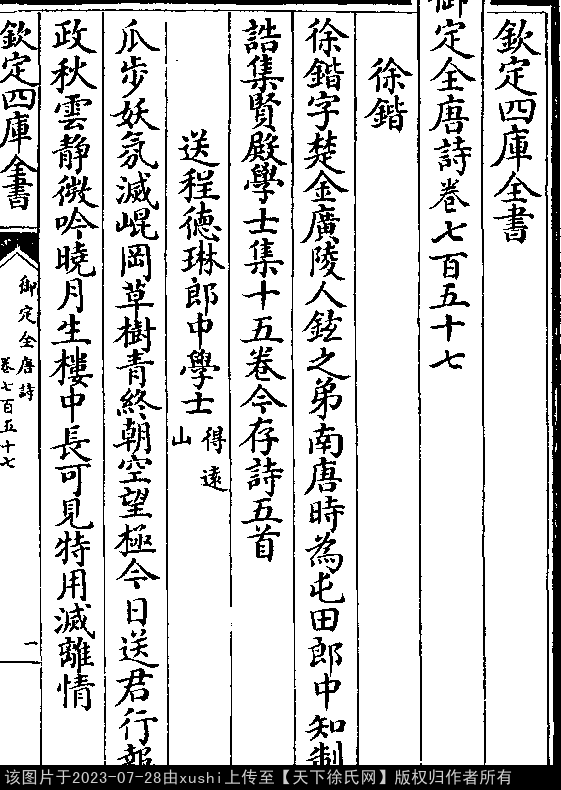 欽定四庫全書
御定全唐詩卷七百五十七
徐鍇
徐鍇字楚金廣陵人鉉之弟南唐時為屯田郎中知制
誥集賢殿學士集十五卷今存詩五首
送程德琳郎中學士
得遠
山
瓜步妖氛滅崐岡草樹青終朝空望極今日送君行報
政秋雲静微吟曉月生樓中長可見特用滅離情
欽定四庫全書
御定全唐詩
卷七百五十七
一
该图片于2023-07-28由xushi上传至【天下徐氏网】版权归作者所有